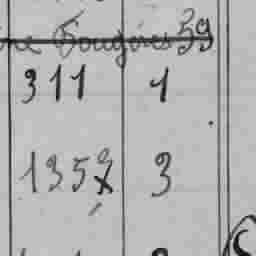 Fougères 59
311 1
135 3